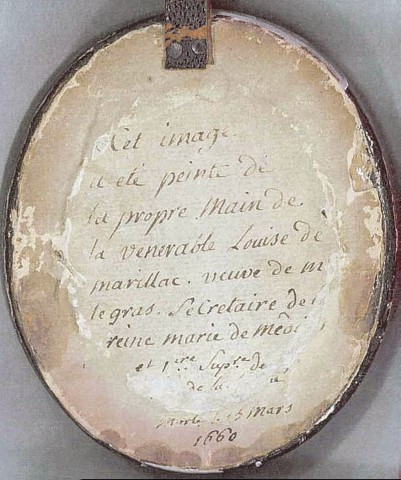 Cet image
a eté peinte de
la propre Main de
la venerable Louise de
marillac. veuve de m
le gras. Secretaire de
reine marie de Médi
et 1.ire Supre. de
de la
Morte le 15 Mars
1660